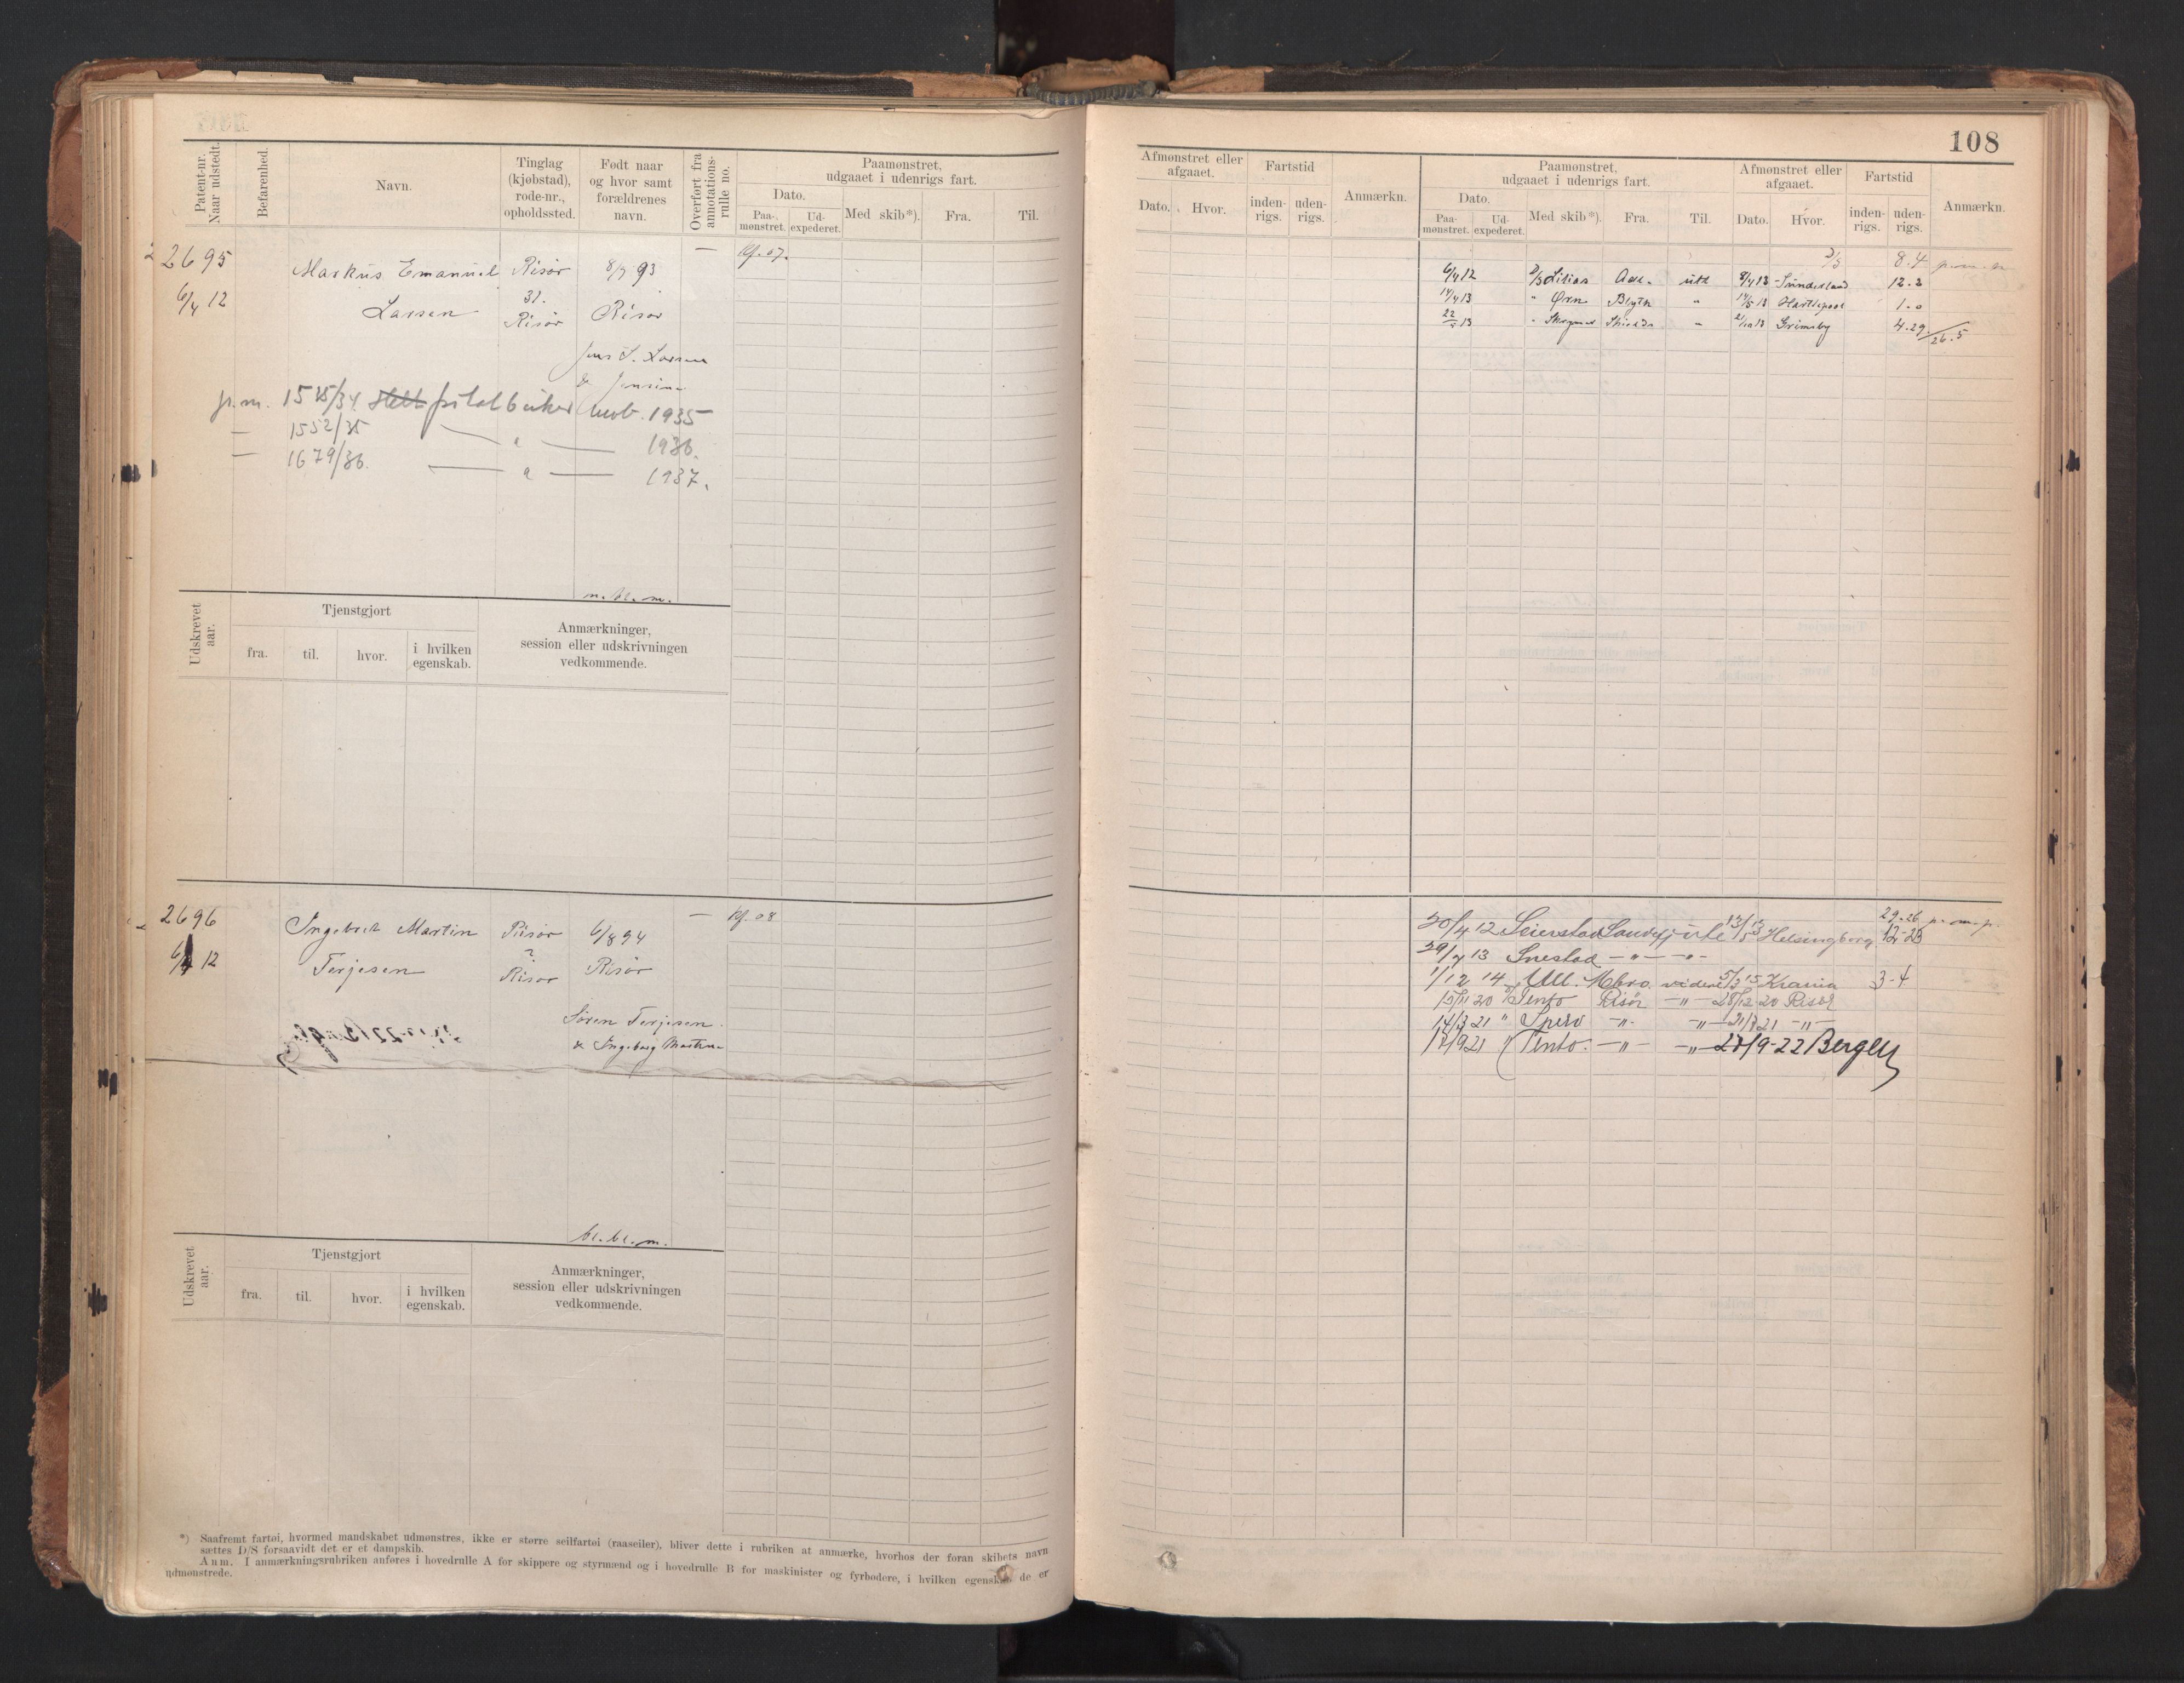 108
Patent-nr. Naar udstedt.
Befarenhed.
Navn.
Tinglag (kjøbstad), rode-nr., opholdssted.
Født naar og hvor samt forældrenes navn.
Overført fra annotations-rulle no.
Paamønstret, udgaaet i udenrigs fart.
Dato.
Paa-mønstret.
Ud-expederet.
Med skib*).
Fra.
Til.
2695
6/4 12
Markus Emanuel
Larsen
Risør
31.
Risør
8/9 93
Risør
Jens L. Larsen
& Jensine
—
Kf. 07.
p.m. 1575/34 fritatt beiker mob. 1935
— 1552/35 — " — 1936.
— 1679/36. — " — 1937.
n. bl. m.
Udskrevet aar.
Tjenstgjort
fra.
til.
hvor.
i hvilken egenskab.
Anmærkninger, session eller udskrivningen vedkommende.
2696
6/4 12
Ingebret Martin
Terjesen
Risør
2
Risør
6/8 94
Risør
Søren Terjesen
& Ingeborg
—
Kf. 08
bl. bl. m.
Udskrevet aar.
Tjenstgjort
fra.
til.
hvor.
i hvilken egenskab.
Anmærkninger, session eller udskrivningen vedkommende.
*) Saafremt fartøi, hvormed mandskabet udmønstres, ikke er større seilfartøi (raaseiler), bliver dette i rubriken at anmærke, hvorhos der foran skibets navn
sættes D/S forsaavidt det er et dampskib.
Anm. I anmærkningsrubriken anføres i hovedrulle A for skippere og styrmænd og i hovedrulle B for maskinister og fyrbødere, i hvilken egenskab de er
udmønstrede.
Afmønstret eller afgaaet.
Dato.
Hvor.
Fartstid
inden-rigs.
uden-rigs.
Anmærkn.
Paamønstret, udgaaet i udenrigs fart.
Dato.
Paa-mønstret.
Ud-expederet.
Med skib*).
Fra.
Til.
Afmønstret eller afgaaet.
Dato.
Hvor.
Fartstid
inden-rigs.
uden-rigs.
Anmærkn.
8.4
6/4 12 D/S Lilian utl 8/4 13 Sunderland 12.2
14/4 13 " Ørn Blyth " 14/5 13 Hartlepool 1.0
22/5 13 " Shields " 21/10 13 Grimsby 4.29 / 26.5
29.26 p.m.p.
30/4 12 Seierstad Sandefj. urte 13/5 13 Helsingborg 12-23
29/7 13 Snestad — " — " —
1/12 14 Ull. videre 5/3 15 Krania 3-4
15/11 20 " Tento Risør — " — 28/12 20 Risør
14/3 21 " Spero — " — — " — 21/8 21 — " —
17/9 21 " Tento. — " — — " — 27/9-22 Bergen